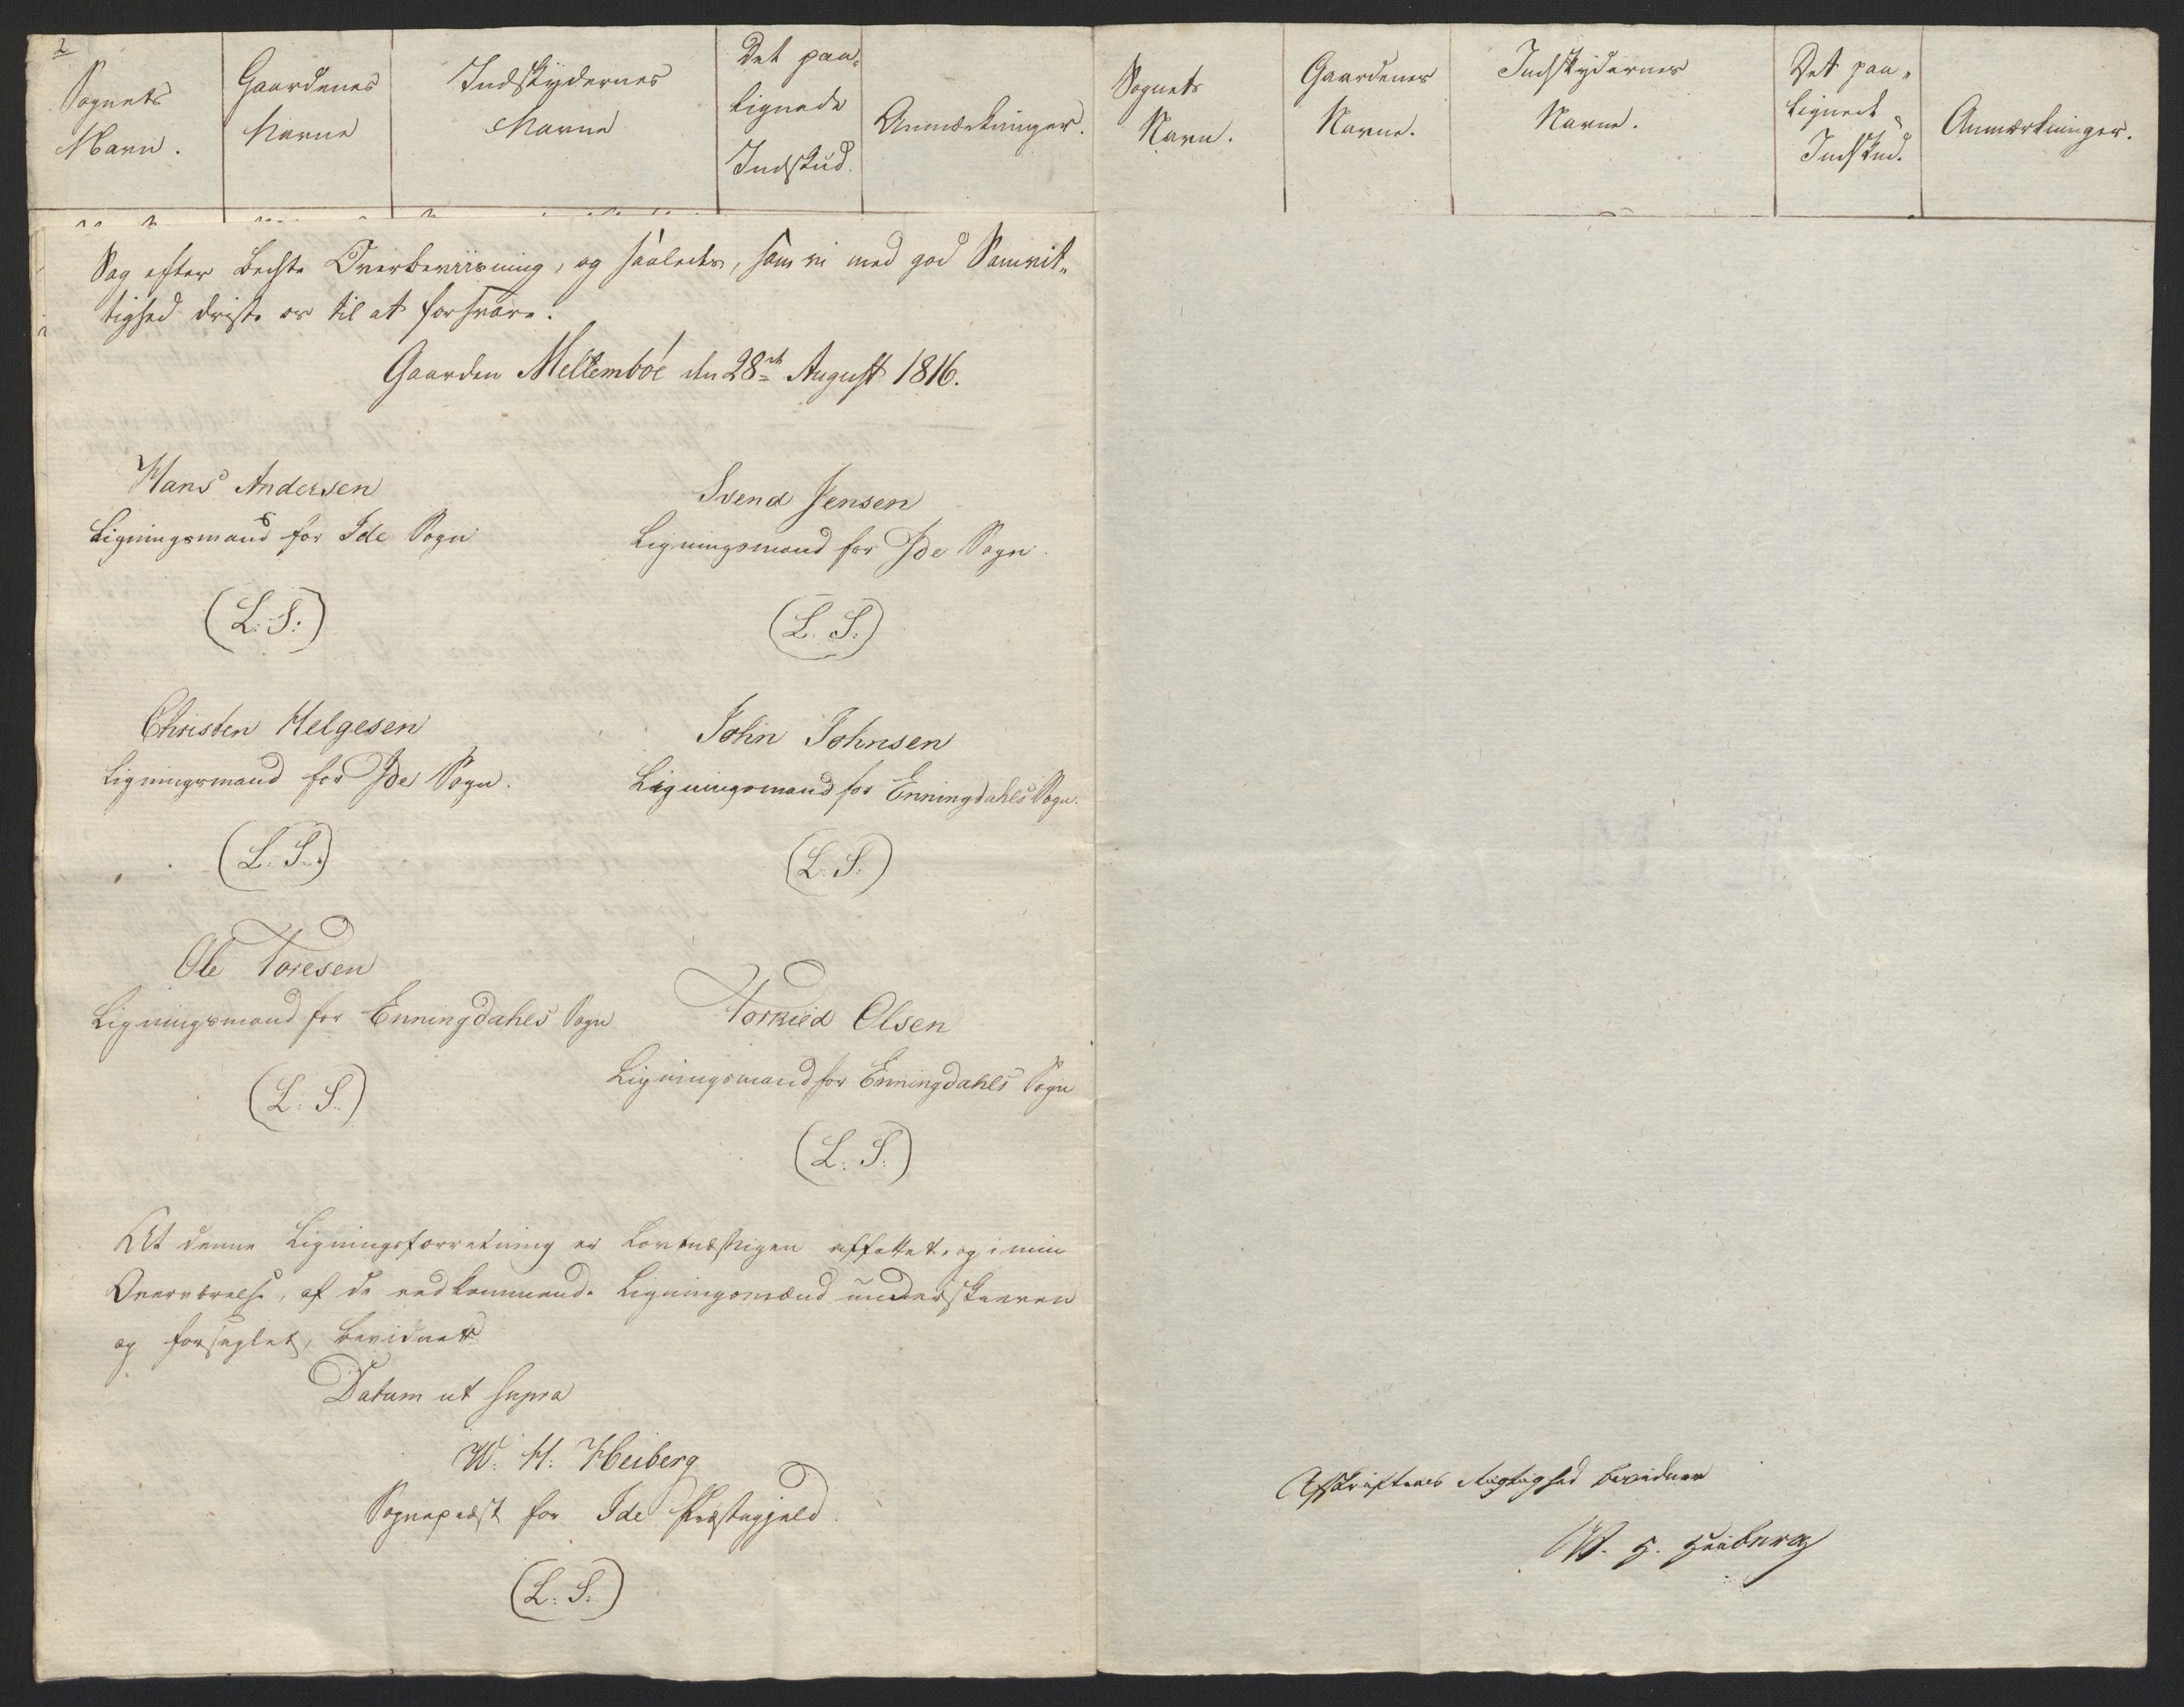 2
Sognets
Navn.
Gaardenes
Navne
Indskydernes
Navne
Det paa-
lignede
Indskud.
Anmærkninger.
Sag efter bedste Overbeviisning, og saaledes, som vi med god Samvit-
tighed driste os til at forsvare.
Gaarden Mellembóe den 28de August 1816.
Hans Andersen
Ligningsmand for Ide Sogn
(L. S.)
Svend Jensen
Ligningsmand for Ide Sogn.
(L. S.)
Christen Helgesen
Ligningsmand for Ide Sogn.
(L. S.)
John Johnsen
Ligningsmand for Enningdahls Sogn.
(L. S.)
Ole Toresen
Ligningsmand for Enningdahls Sogn
(L. S.)
Torkild Olsen
Ligningsmand for Enningdahls Sogn
(L. S.)
At denne Ligningsforretning er lovmæssigen affattet, og i min
Overværelse, af de vedkommende Ligningsmænd underskreven
og forseglet, bevidnes
Datum ut supra
W. H. Heiberg
Sognepræst for Ide Præstegjeld
(L. S.)
Sognets
Navn.
Gaardenes
Navne.
Indskydernes
Navne.
Det paa-
lignede
Indskud.
Anmærkninger.
Afskriftens Rigtighed bevidner
W. H. Heiberg